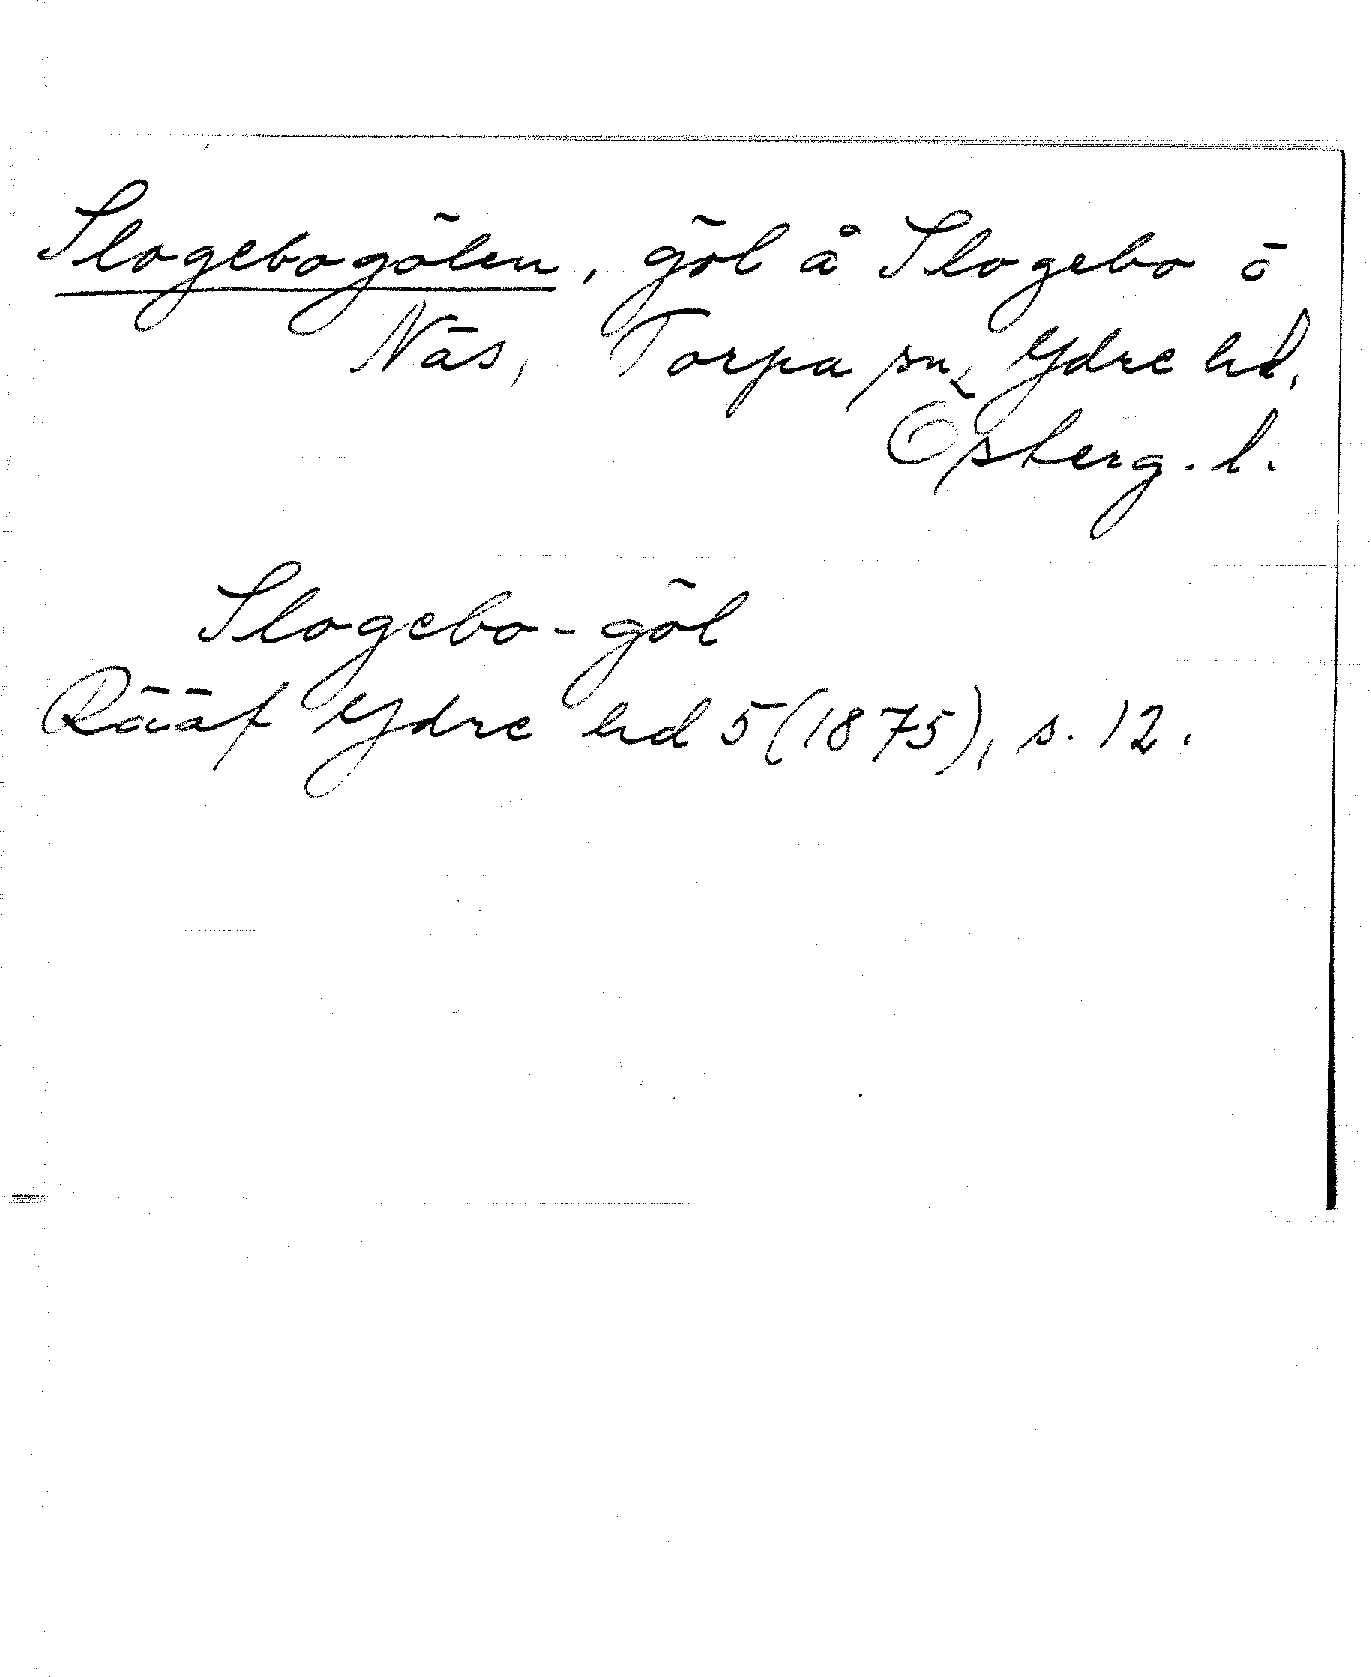 Slogebogölen, göl å Slogebo ö
Näs, Torpa sn, Ydre hd,
Österg. l.
Slogebo-göl
Rääf Ydre hd 5(1875), s. 12.